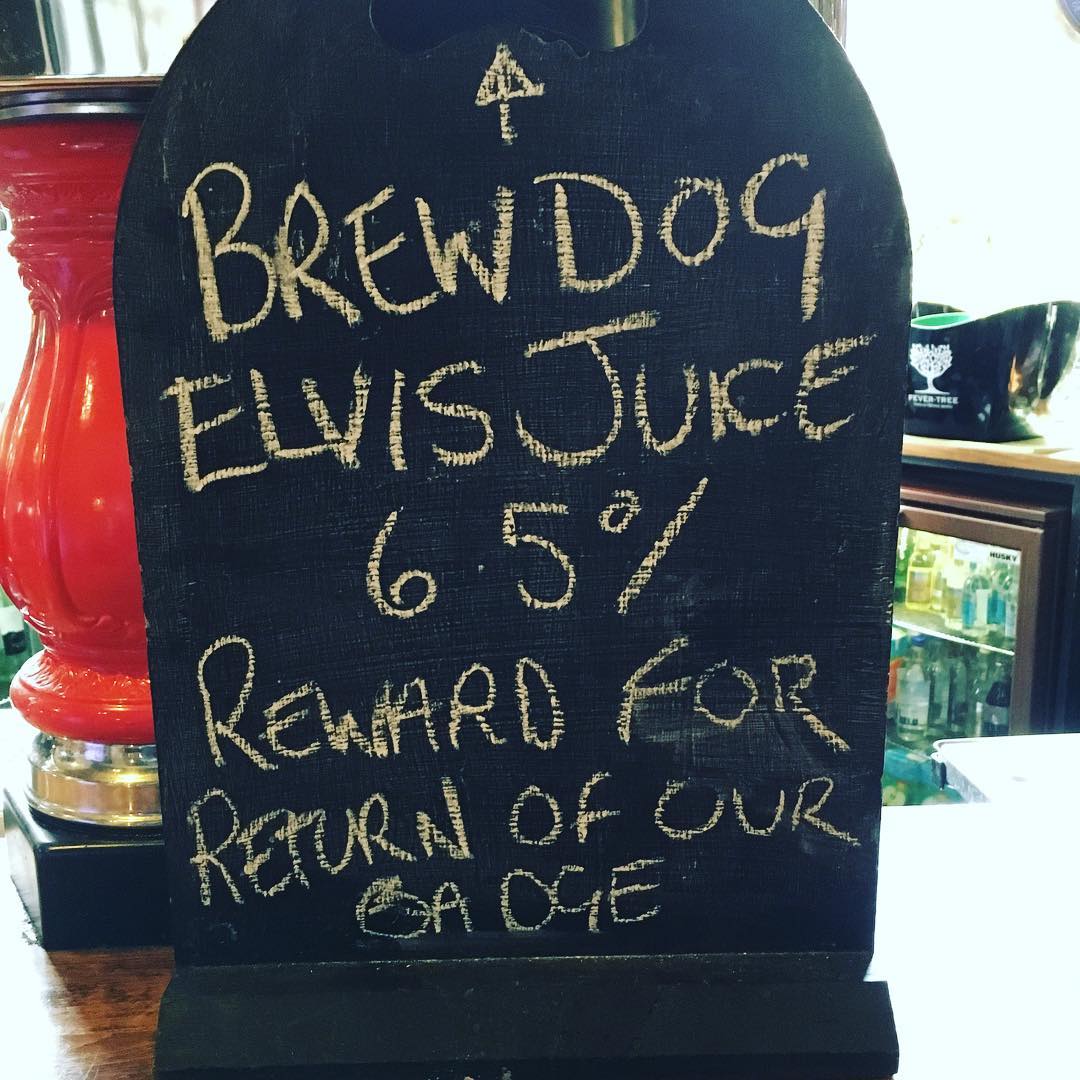 BREWDOG
ELVIS JUICE
6.5%
REWARD FOR
RETURN OF OUR
BADGE
FEVER-TREE
HUSKY